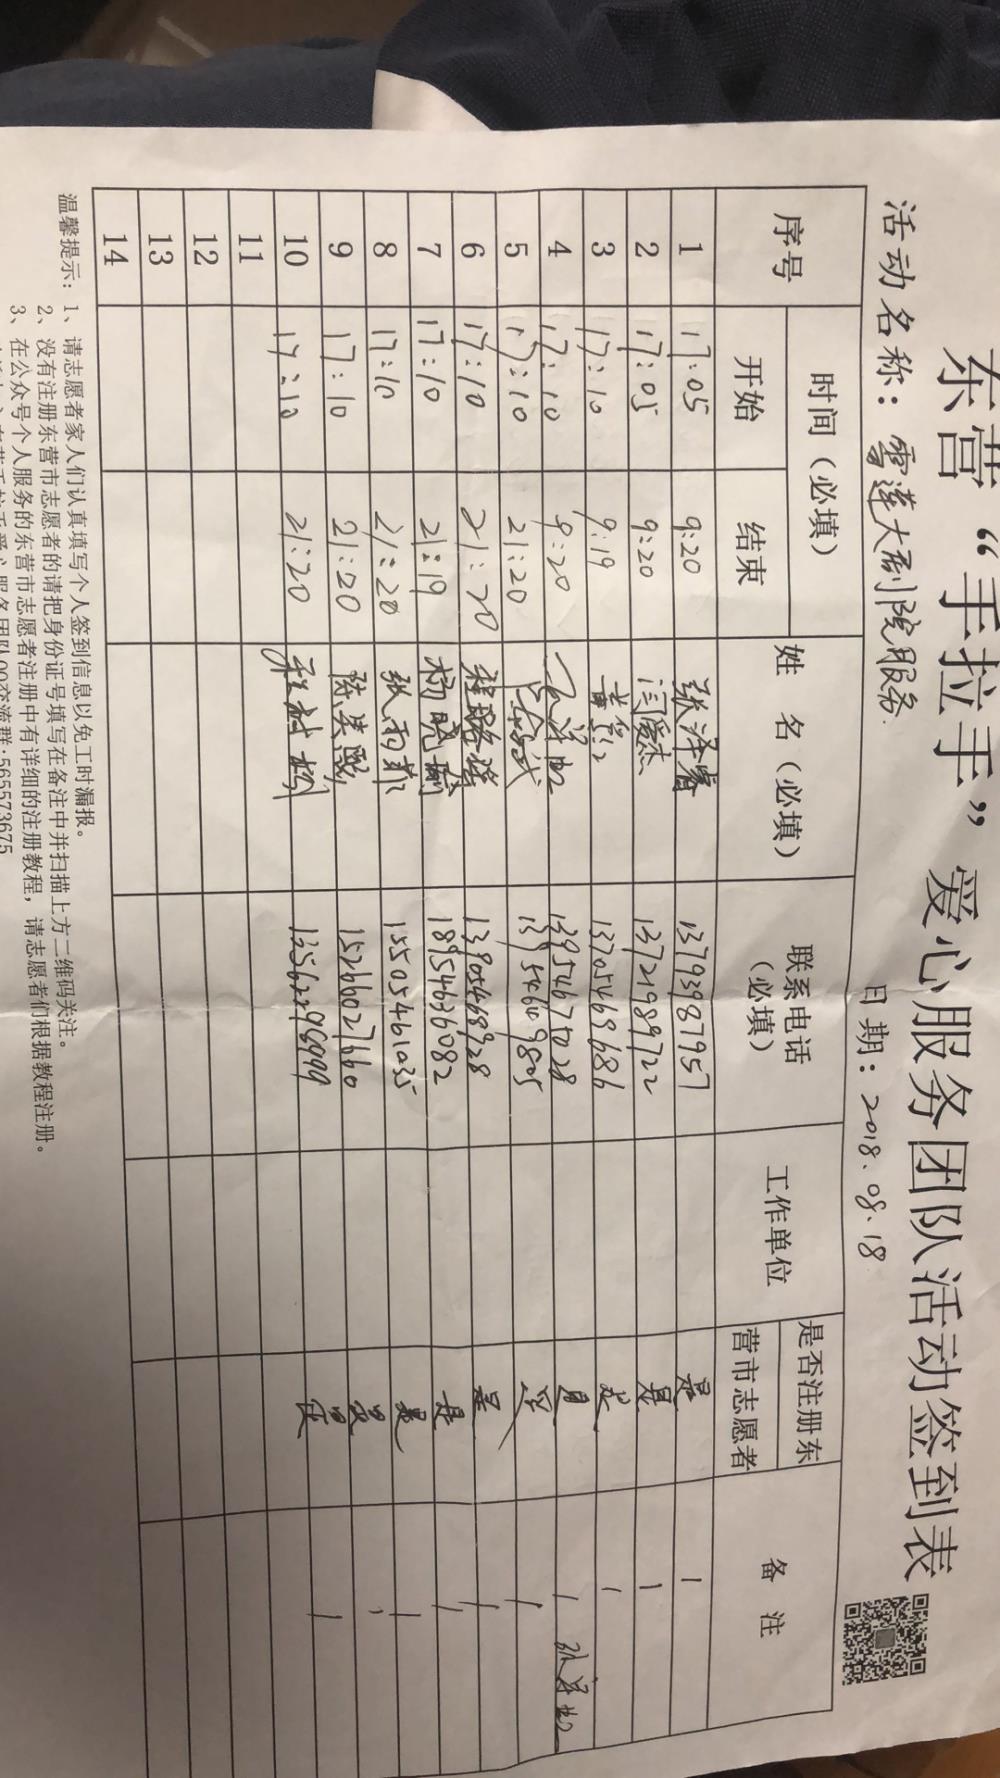 东营“手拉手”爱心服务团队活动签到表
活动名称：雪莲大剧院服务 日期：2018.08.18
序号 时间（必填） 姓 名（必填） 联系电话（必填） 工作单位 是否注册东营市志愿者 备 注
开始 结束
1 17:05 9:20 张泽睿 13793987957 是 1
2 17:05 9:20 闫爱杰 13721989722 是 1
3 17:10 9:19 13705469686 是 1
4 17:10 9:20 13954675028 是 1
5 17:10 21:20 13954609805 是 1
6 17:10 21:20 程璐瑶 13905468928 是 1
7 17:10 21:19 杨晓瑜 18954636082 是 1
8 17:10 21:20 张雨菲 15505461035 是 1
9 17:10 21:20 陈奕熙 15266027660 是 1
10 17:10 21:20 程树彬 13562296999 1
11
12
13
14
温馨提示：1、请志愿者家人们认真填写个人签到信息以免工时漏报。
2、没有注册东营市志愿者的请把身份证号填写在备注中并扫描上方二维码关注。
3、在公众号个人服务的东营市志愿者注册中有详细的注册教程，请志愿者们根据教程注册。
QQ交流群:565573675